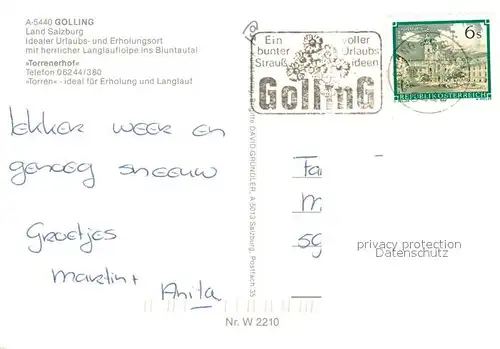 A-5440 GOLLING
Land Salzburg
Idealer Urlaubs- und Erholungsort
mit herrlicher Langlaufloipe ins Bluntautal
»Torrenerhof«
Telefon 06244/380
»Torren« - ideal für Erholung und Langlauf
Ein voller
bunter Urlaubs-
Strauß ideen
GollinG
6s
REPUBLIK ÖSTERREICH
lekker weer en
genoeg sneeuw
Groetjes
Martin +
Anita
DAVID GRÜNDLER, A 5013 Salzburg, Postfach 35
Fa
M
59
privacy protection
Datenschutz
Nr. W 2210